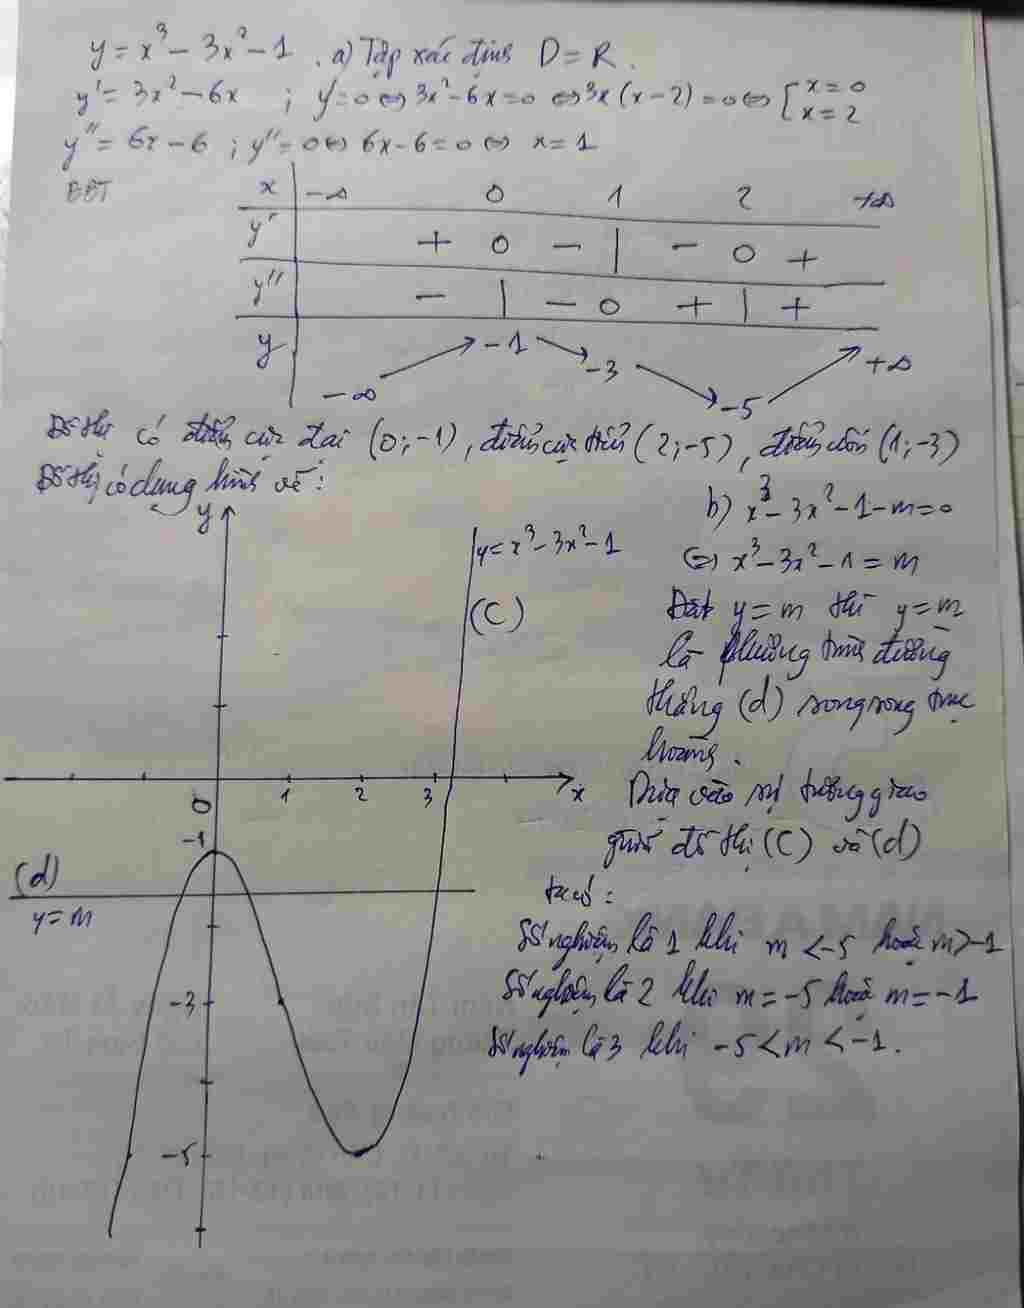 y = x³ - 3x² - 1 . a) Tập xác định D = R.
y' = 3x² - 6x ; y' = 0 ⇔ 3x² - 6x = 0 ⇔ 3x(x - 2) = 0 ⇔ [ x = 0
x = 2
y'' = 6x - 6 ; y'' = 0 ⇔ 6x - 6 = 0 ⇔ x = 1
BBT
x -∞ 0 1 2 +∞
y' + 0 - | - 0 +
y'' - | - 0 + | +
y -∞ ↗ -1 ↘ -3 ↘ -5 ↗ +∞
Đồ thị có điểm cực đại (0; -1), điểm cực tiểu (2; -5), điểm uốn (1; -3)
Đồ thị có dạng hình vẽ:
y
y = x³ - 3x² - 1
(C)
0 1 2 3 x
-1
(d)
y = m
-3
-5
b) x³ - 3x² - 1 - m = 0
⇔ x³ - 3x² - 1 = m
Đặt y = m thì y = m
là phương trình đường
thẳng (d) song song trục
hoành.
Dựa vào sự tương giao
giữa đồ thị (C) và (d)
ta có:
Số nghiệm là 1 khi m < -5 hoặc m > -1
Số nghiệm là 2 khi m = -5 hoặc m = -1
Số nghiệm là 3 khi -5 < m < -1.